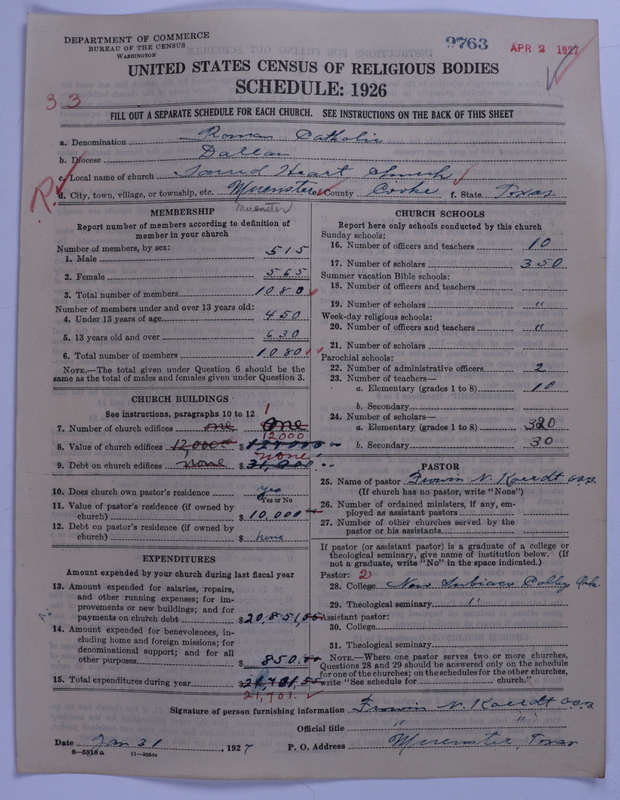 DEPARTMENT OF COMMERCE
BUREAU OF THE CENSUS
WASHINGTON
9763
APR 2 1927
UNITED STATES CENSUS OF RELIGIOUS BODIES
SCHEDULE: 1926
33
FILL OUT A SEPARATE SCHEDULE FOR EACH CHURCH. SEE INSTRUCTIONS ON THE BACK OF THIS SHEET
a. Denomination Roman Catholic
b. Diocese Dallas
c. Local name of church Sacred Heart Church
d. City, town, village, or township, etc. Muenster e. County Cooke f. State Texas
Muenster
MEMBERSHIP
Report number of members according to definition of
member in your church
Number of members, by sex:
1. Male 515
2. Female 565
3. Total number of members 1080
Number of members under and over 13 years old:
4. Under 13 years of age 450
5. 13 years old and over 630
6. Total number of members 1080
NOTE.—The total given under Question 6 should be the
same as the total of males and females given under Question 3.
CHURCH BUILDINGS
See instructions, paragraphs 10 to 12
1
7. Number of church edifices one one
12000
8. Value of church edifices 12,000 $
none
9. Debt on church edifices none $
10. Does church own pastor's residence yes
Yes or No
11. Value of pastor's residence (if owned by
church) $ 10,000
12. Debt on pastor's residence (if owned by
church) $ none
EXPENDITURES
Amount expended by your church during last fiscal year
13. Amount expended for salaries, repairs,
and other running expenses; for im-
provements or new buildings; and for
payments on church debt $20,851,00
14. Amount expended for benevolences, in-
cluding home and foreign missions; for
denominational support; and for all
other purposes $ 850.00
15. Total expenditures during year $21,701.00
21,701.
CHURCH SCHOOLS
Report here only schools conducted by this church
Sunday schools:
16. Number of officers and teachers 10
17. Number of scholars 350
Summer vacation Bible schools:
18. Number of officers and teachers
19. Number of scholars "
Week-day religious schools:
20. Number of officers and teachers "
21. Number of scholars
Parochial schools:
22. Number of administrative officers 2
23. Number of teachers—
a. Elementary (grades 1 to 8) 10
b. Secondary
24. Number of scholars—
a. Elementary (grades 1 to 8) 320
b. Secondary 30
PASTOR
25. Name of pastor Frowin N. Koerdt O.S.B.
(If church has no pastor, write "None")
26. Number of ordained ministers, if any, em-
ployed as assistant pastors
27. Number of other churches served by the
pastor or his assistants
If pastor (or assistant pastor) is a graduate of a college or
theological seminary, give name of institution below. (If
not a graduate, write "No" in the space indicated.)
Pastor: 2
28. College New Subiaco Abbey Ark.
29. Theological seminary "
Assistant pastor:
30. College
31. Theological seminary
NOTE.—Where one pastor serves two or more churches,
Questions 28 and 29 should be answered only on the schedule
for one of the churches; on the schedules for the other churches,
write "See schedule for church."
Signature of person furnishing information Frowin N. Koerdt O.S.B.
Official title " "
Date Jan 31, 1927 P. O. Address Muenster, Texas